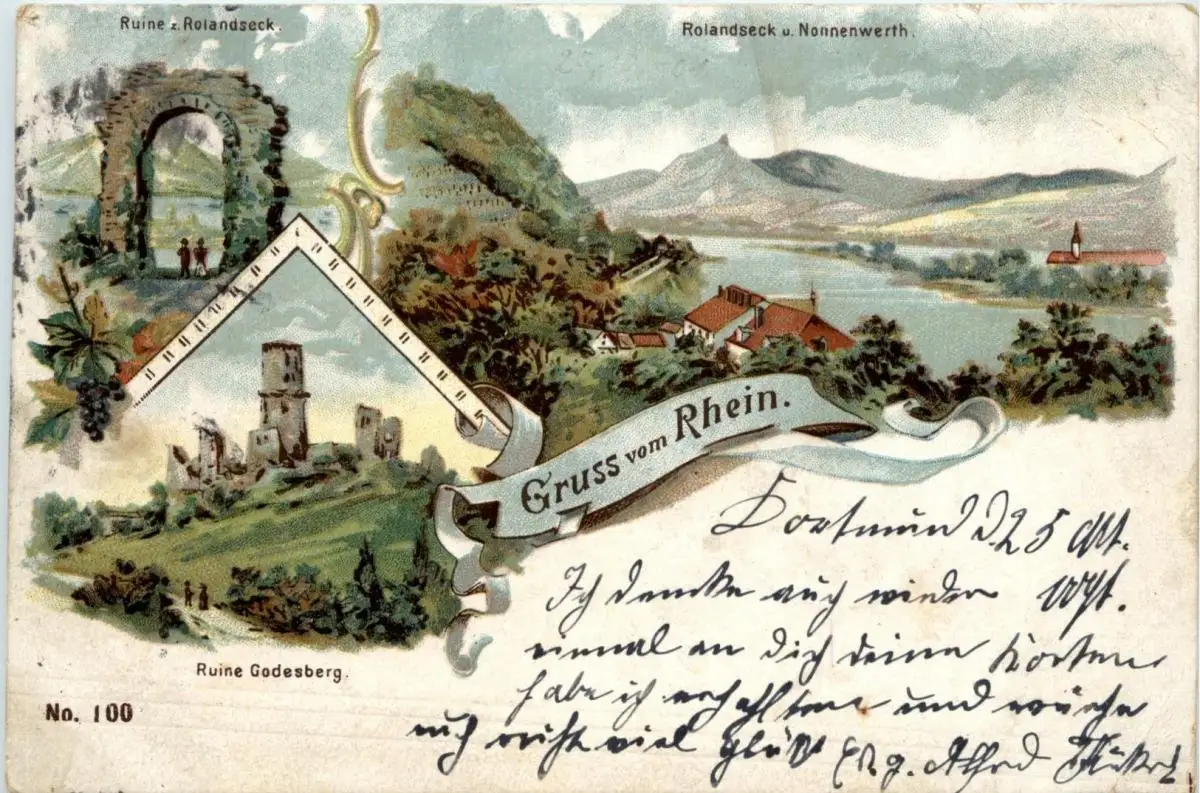 Ruine z. Rolandseck.
Rolandseck u. Nonnenwerth.
Gruss vom Rhein.
Ruine Godesberg.
No. 100
Dortmund d. 25 Okt.
Ich denke auch wieder
einmal an dich deine Karten
habe ich erhalten und wünsche
auch recht viel Alfred